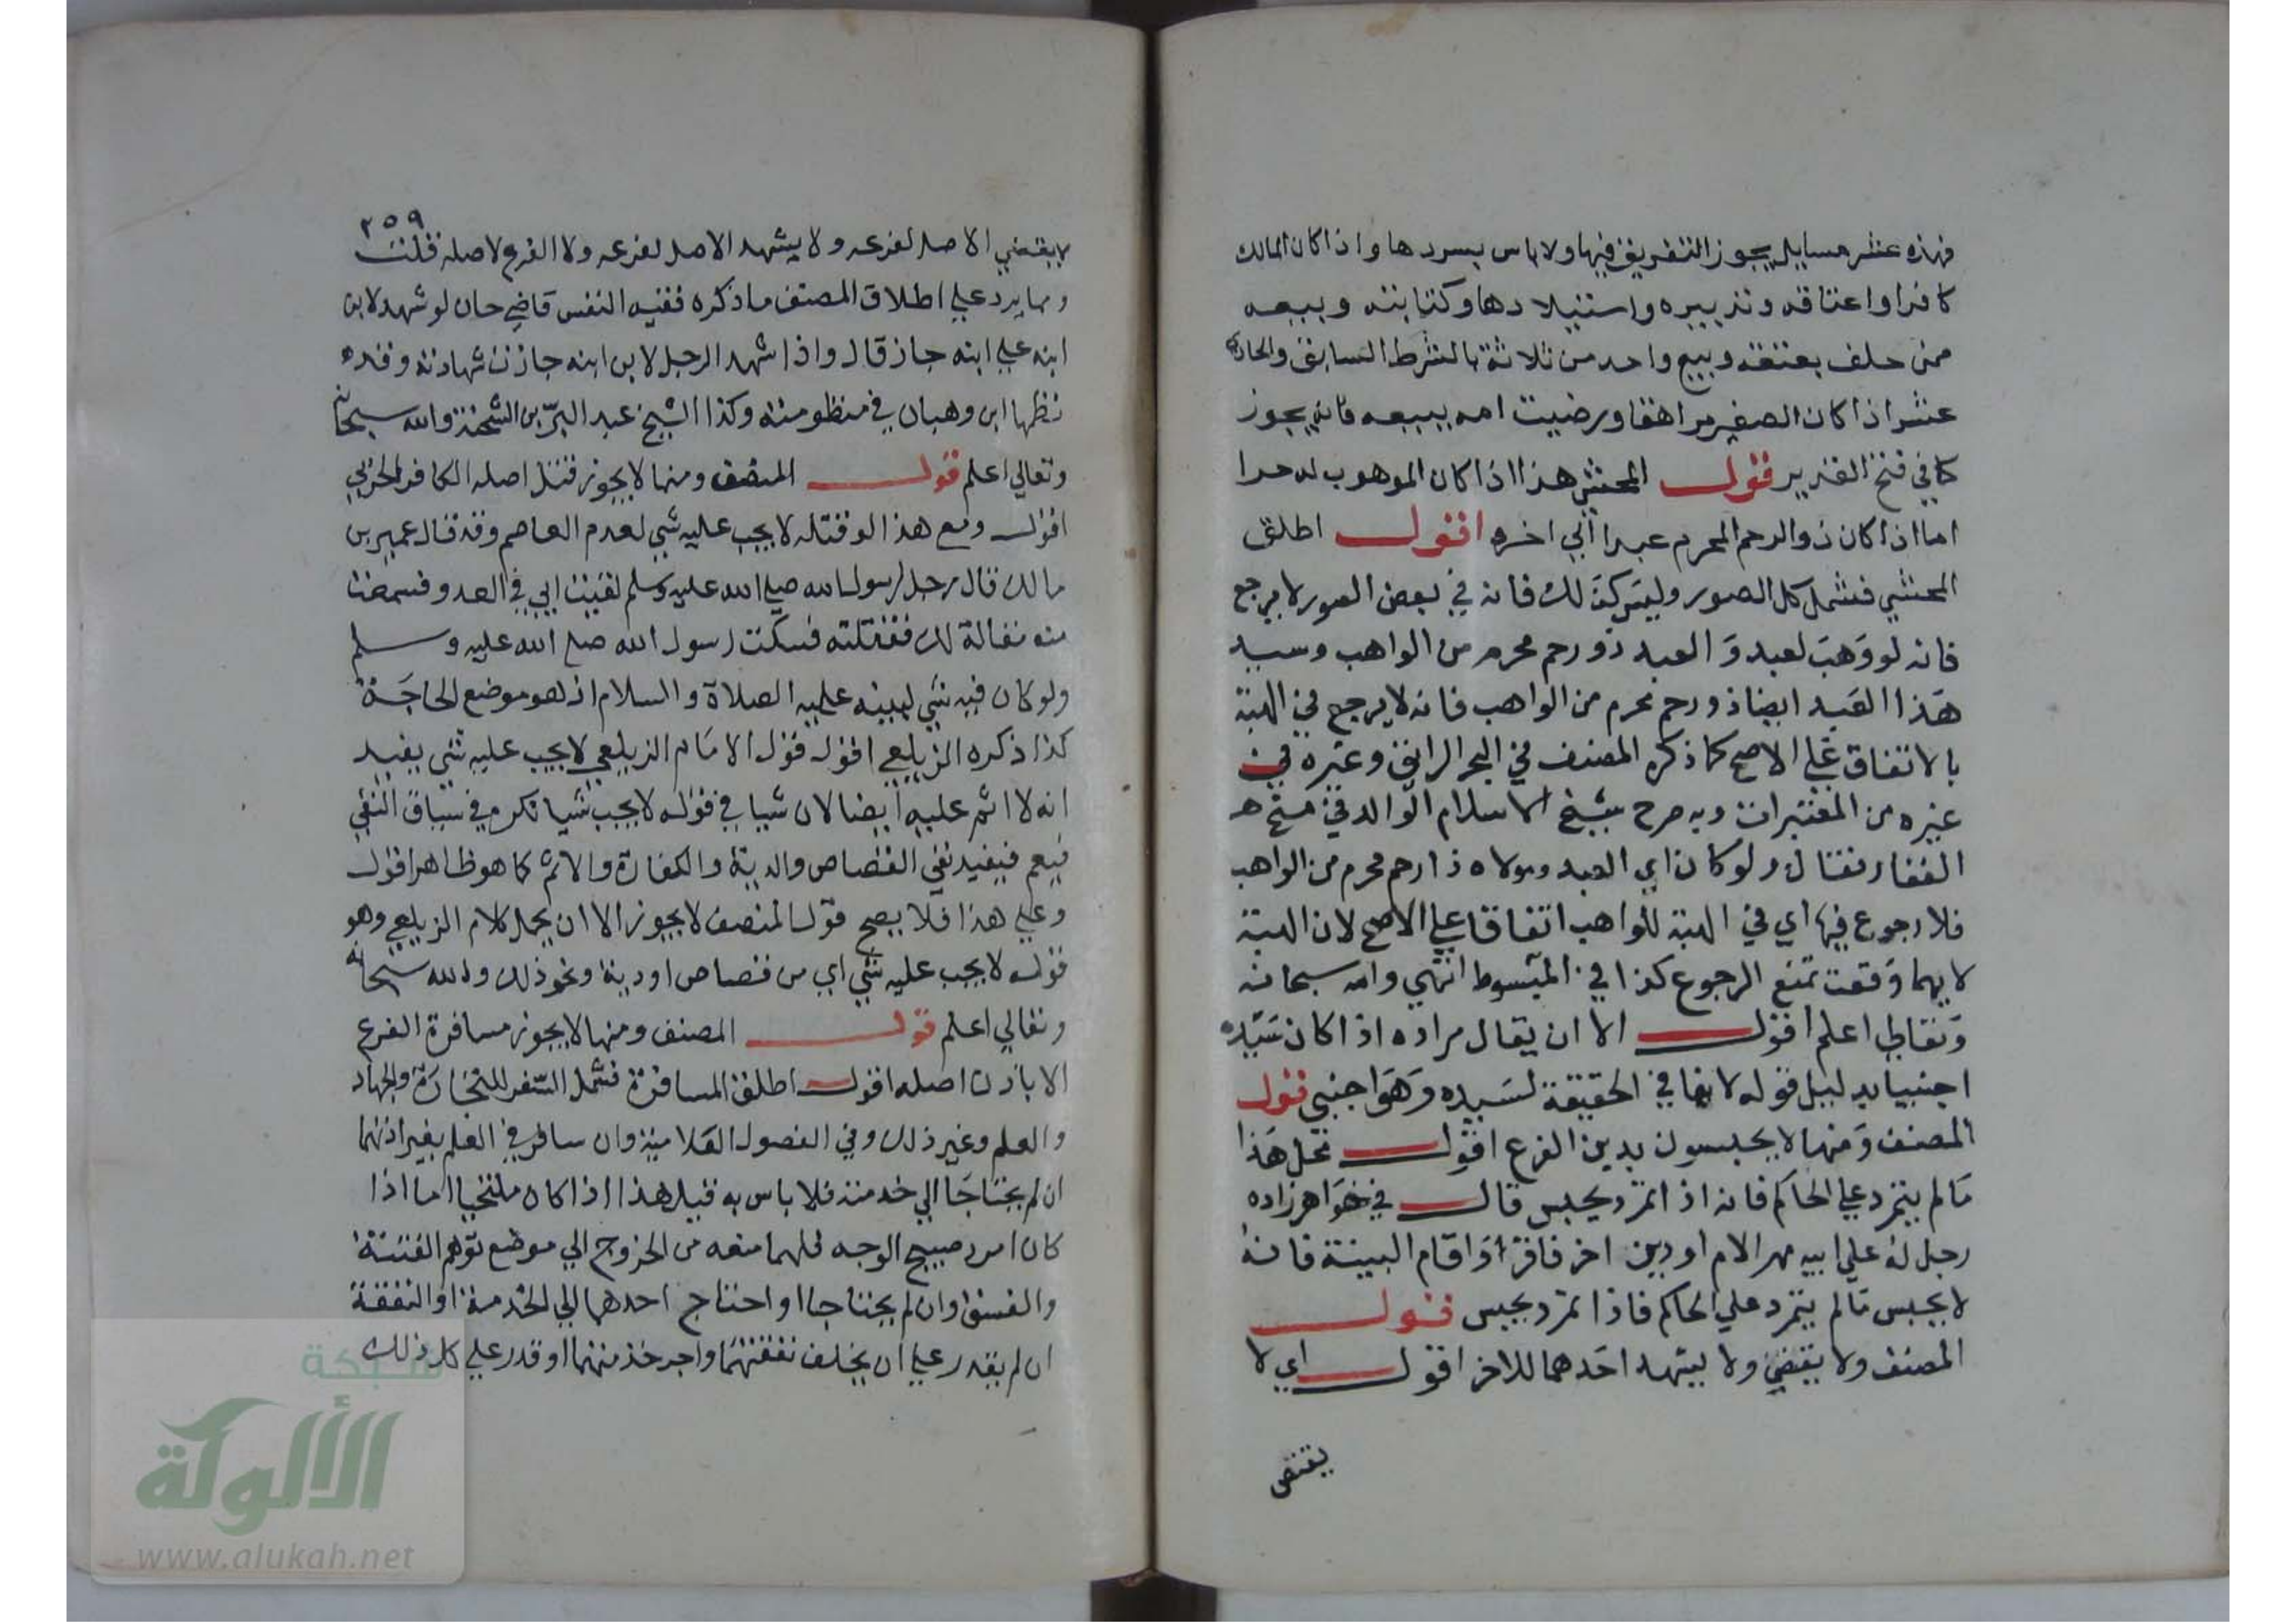 فهذه عشر مسايل يجوز التفريق فيها ولا باس بسردها واذا كان المالك
كافرا واعتاقه وتدبيره واستيلادها وكتابته وبيعه
ممن حلف بعتقه وبيع واحد من ثلاثة بالشرط السابق والحادي
عشر اذا كان الصغير مراهقا ورضيت امه ببيعه فانه يجوز
كما في فتح القدير قول المحشي هذا اذا كان الموهوب له حرا
اما اذا كان ذو الرحم المحرم عبدا الي اخره اقول اطلق
المحشي فشمل كل الصور وليس كذلك فانه في بعض الصور لا يرجع
فانه لو وهب لعبد والعبد ذو رحم محرم من الواهب وسيد
هذا العبد ايضا ذو رحم محرم من الواهب فانه لا يرجع في الهبة
بالاتفاق علي الاصح كما ذكره المصنف في البحر الرائق وغيره في
غيره من المعتبرات وبه صرح شيخ الاسلام الوالد في منح
الغفار فقال ولو كان اي العبد ومولاه ذا رحم محرم من الواهب
فلا رجوع فيها اي في الهبة للواهب اتفاقا علي الاصح لان الهبة
لايهما وقعت تمنع الرجوع كذا في المبسوط انتهي والله سبحانه
وتعالي اعلم اقول الا ان يقال مراده اذا كان سيده
اجنبيا بدليل قوله لانها في الحقيقة لسيده وهو اجنبي قول
المصنف ومنها لا يحبسون بدين الفرع اقول محل هذا
ما لم يتمرد علي الحاكم فانه اذا تمرد يحبس قال في خواهر زاده
رجل له علي ابيه مهر الام او دين اخر فاقر او اقام البينة فانه
لا يحبس ما لم يتمرد علي الحاكم فاذا تمرد يحبس قول
المصنف ولا يقضي ولا يشهد احدهما للاخر اقول اي لا
يقضي
٢٥٩
لا يقضي الاصل لفرعه ولا يشهد الاصل لفرعه ولا الفرع لاصله قلت
ومما يرد علي اطلاق المصنف ما ذكره فقيه النفس قاضي خان لو شهد لابن
ابنه علي ابنه جاز قال واذا شهد الرجل لابن ابنه جازت شهادته وقد
نظمها ابن وهبان في منظومته وكذا الشيخ عبد البر بن الشحنة والله سبحانه
وتعالي اعلم قول المصنف ومنها لا يجوز قتل اصله الكافر الحربي
اقول ومع هذا لو قتله لا يجب عليه شي لعدم العاصم وقد قال عمير بن
مالك قال رجل لرسول الله صلي الله عليه وسلم لقيت ابي في العدو فسمعت
منه مقالة لك فقتلته فسكت رسول الله صلي الله عليه وسلم
ولو كان فيه شي لبينه عليه الصلاة والسلام اذ هو موضع الحاجة
كذا ذكره الزيلعي اقول قول الامام الزيلعي لا يجب عليه شي يفيد
انه لا اثم عليه ايضا لان شيا في قوله لا يجب شيا نكره في سياق النفي
فيعم فيفيد نفي القصاص والدية والكفارة والاثم كما هو ظاهر اقول
وعلي هذا فلا يصح قول المنصف لا يجوز الا ان يحمل كلام الزيلعي وهو
قوله لا يجب عليه شي اي من قصاص او دية ونحو ذلك والله سبحانه
وتعالي اعلم قول المصنف ومنها لا يجوز مسافرة الفرع
الا باذن اصله اقول اطلق المسافرة فشمل السفر للتجارة والجهاد
والعلم وغير ذلك وفي الفصول العلامية وان سافر في العلم بغير اذنهما
ان لم يحتاجا الي خدمته فلا باس به قيل هذا اذا كان ملتحيا اما اذا
كان امرد صبيح الوجه فلهما منعه من الخروج الي موضع توهم الفتنة
والفسق وان لم يحتاجا او احتاج احدهما الي الخدمة او النفقة
ان لم يقدر علي ان يخلف نفقتهما واجر خدمتهما او قدر علي كل ذلك
شبكة
الألوكة
www.alukah.net